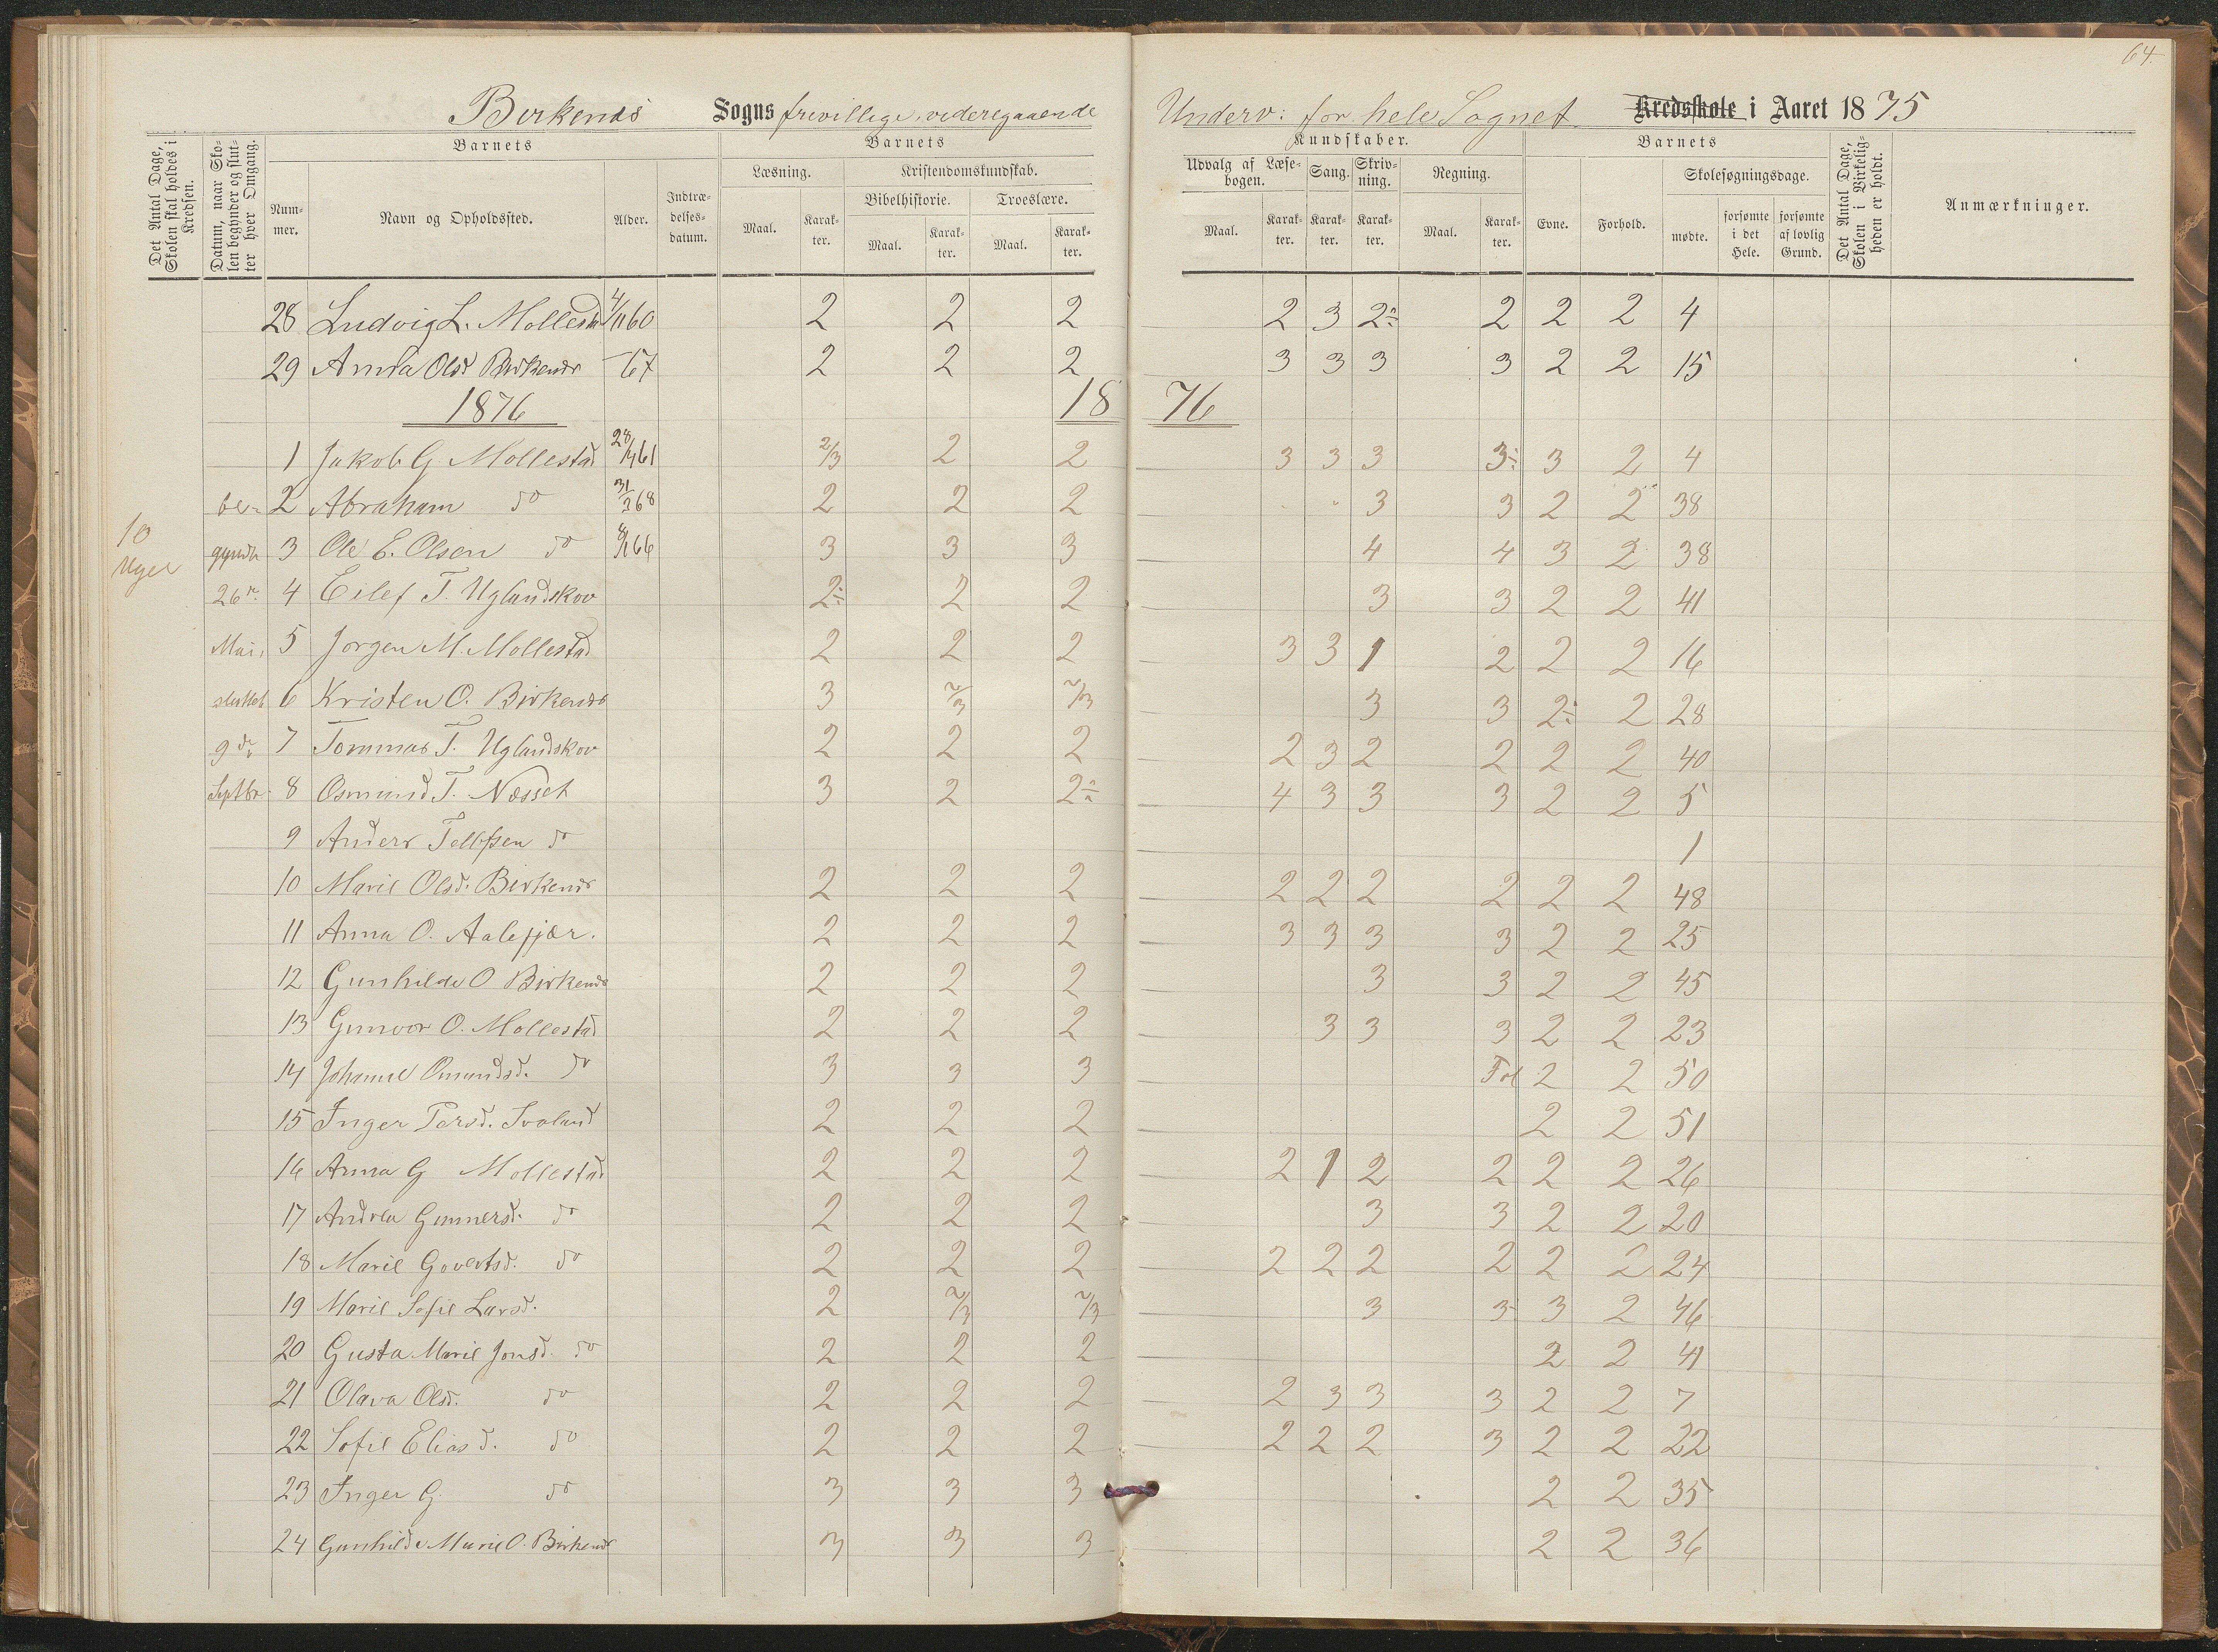 64.
Birkenes Sogns frivillige, videregaaende Underv: for hele Sognet Kredsskole i Aaret 1875
Det Antal Dage, Skolen skal holdes i Kredsen.
Datum, naar Skolen begynder og slutter hver Omgang.
Barnets
Nummer.
Navn og Opholdssted.
Alder.
Indtrædelsesdatum.
Barnets
Læsning.
Maal.
Karakter.
Kristendomskundskab.
Bibelhistorie.
Maal.
Karakter.
Troeslære.
Maal.
Karakter.
Kundskaber.
Udvalg af Læsebogen.
Maal.
Karakter.
Sang.
Karakter.
Skrivning.
Karakter.
Regning.
Maal.
Karakter.
Barnets
Evne.
Forhold.
Skolesøgningsdage.
mødte.
forsømte i det Hele.
forsømte af lovlig Grund.
Det Antal Dage, Skolen i Virkeligheden er holdt.
Anmærkninger.
28 Ludvig L. Mollestad 4/11 60 2 2 2 2 3 2÷ 2 2 2 4
29 Anna Olsd Birkenes 67 2 2 2 3 3 3 3 2 2 15
1876 1876
1 Jakob G. Mollestad 28/4 61 2/3 2 2 3 3 3 3÷ 3 2 4
10 Uger
be= 2 Abraham do 31/3 68 2 2 2 3 3 2 2 38
gyndte 3 Ole E. Olsen do 66 3 3 3 4 4 3 2 38
26de 4 Eilef T. Uglandskov 2÷ 2 2 3 3 2 2 41
Mai, 5 Jorgen M. Mollestad 2 2 2 3 3 1 2 2 2 16
sluttet 6 Kristen O. Birkenes 3 2/3 2/3 3 3 2÷ 2 28
9de 7 Tommas T. Uglandskov 2 2 2 2 3 2 2 2 2 40
Septbr. 8 Osmund T. Næsset 3 2 2÷ 4 3 3 3 2 2 5
9 Anders Tellefsen do 1
10 Marie Olsd. Birkenes 2 2 2 2 2 2 2 2 2 48
11 Anna O. Aalefjær. 2 2 2 3 3 3 3 2 2 25
12 Gunhilde O Birkenes 2 2 2 3 3 2 2 45
13 Gunvor O. Mollestad 2 2 2 3 3 3 2 2 23
14 Johanne Omundsd. do 3 3 3 2 2 50
15 Inger Persd. Svaland 2 2 2 2 2 51
16 Anna G Mollestad 2 2 2 2 1 2 2 2 2 26
17 Andrea Gunnersd. do 2 2 2 3 3 2 2 20
18 Marie Govertsd. do 2 2 2 2 2 2 2 2 2 24
19 Marie Sofie Larsd. 2 2/3 2/3 3 3 3 2 46
20 Gusta Marie Jonsd. do 2 2 2 2 2 41
21 Olava Olsd. do 2 2 2 2 3 3 3 2 2 7
22 Sofie Eliasd. do 2 2 2 2 2 2 3 2 2 22
23 Inger G. do 3 3 3 2 2 35
24 Gunhilde Marie O. Birkenes 3 3 3 2 2 36